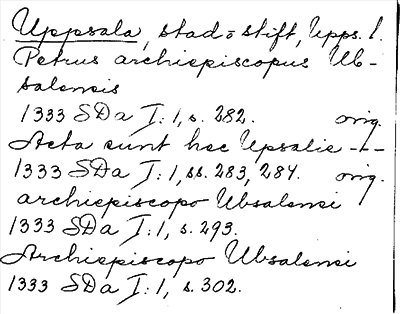 Uppsala, stad o stift, Upps. l.
Petrus archiepiscopus Ub-
salensis
1333 SDa I:1, s. 282. orig.
Acta sunt hec Upsalie -"-
1333 SDa I:1, ss. 283, 284. orig.
archiepiscopo Ubsalensi
1333 SDa I:1, s. 293.
Archiepiscopo Ubsalensi
1333 SDa I:1, s. 302.